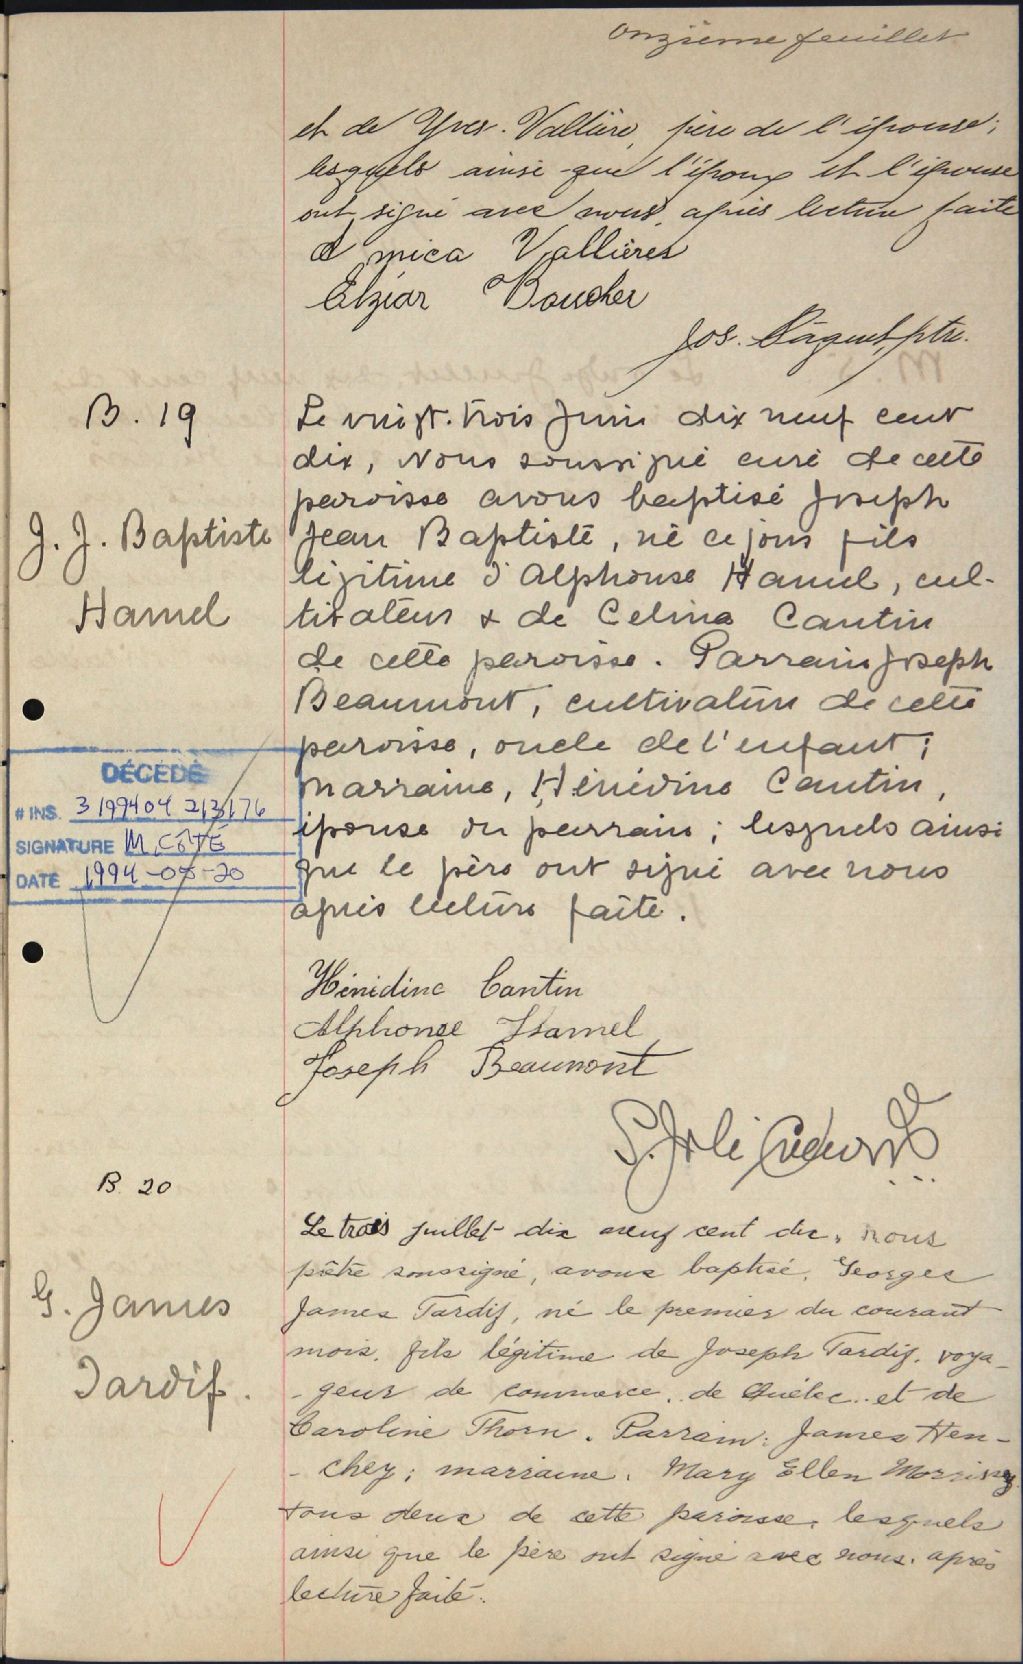 Onzième feuillet
et de Yves Vallière, père de l'épouse;
lesquels ainsi que l'époux et l'épouse
ont signé avec nous, après lecture faite
Vallières
Elzéar Boucher
Jos. Pâquet, ptre.
B. 19
J. J. Baptiste
Hamel
Le vingt-trois Juin dix neuf cent
dix, Nous soussigné curé de cette
paroisse avons baptisé Joseph
Jean Baptiste, né ce jour fils
légitime d'Alphonse Hamel, cul-
tivateur & de Celina Cantin
de cette paroisse. Parrain Joseph
Beaumont, cultivateur de cette
paroisse, oncle de l'enfant;
marraine, Hénédine Cantin,
épouse du parrain; lesquels ainsi
que le père ont signé avec nous
après lecture faite.
DÉCÉDÉ
# INS. 3199404 213176
SIGNATURE M. CÔTÉ
DATE 1994-05-20
Hénédine Cantin
Alphonse Hamel
Joseph Beaumont
S. Joli
B. 20
G. James
Tardif.
Le trois juillet dix neuf cent dix, nous
prêtre soussigné, avons baptisé, Georges
James Tardif, né le premier du courant
mois, fils légitime de Joseph Tardif, voya-
-geur de commerce, de Québec et de
Caroline Thorn. Parrain: James Hen-
-chey; marraine, Mary Ellen Morrissey
tous deux de cette paroisse, lesquels
ainsi que le père ont signé avec nous, après
lecture faite.